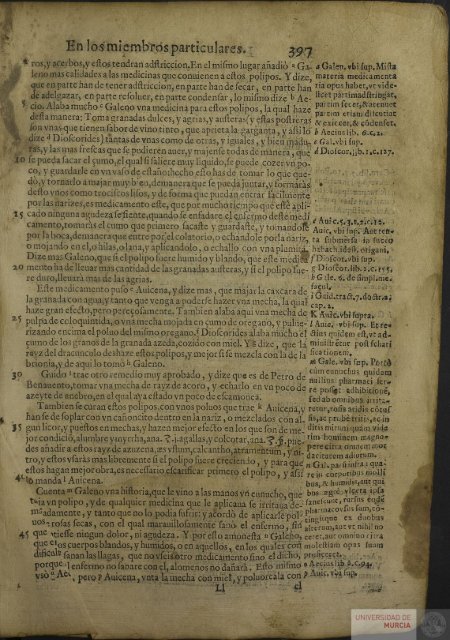 En los miembros particulares. 397
ros, y acerbos, y estos tendran adstriccion. En el mismo lugar añadió Ga
leno mas calidades a las medicinas que conuienen a estos polipos. Y dize,
que en parte han de tener adstriccion, en parte han de secar, en parte han
de adelgazar, en parte resoluer, en parte condensar, lo mismo dize Ae
cio. Alaba mucho Galeno vna medicina para estos polipos, la qual haze
desta manera: Toma granadas dulces, y agrias, y austeras (y estas postreras
son vnas que tienen sabor de vino tinto, que aprieta la garganta, y assi lo
dize Dioscorides) tantas de vnas como de otras, y iguales, y bien madu-
ras, y las mas frescas que se pudieren auer, y majense todas de manera, que
10 se pueda sacar el çumo, el qual si saliere muy liquido, se puede cozer vn po-
co, y guardarle en vn vaso de estaño: hecho esto has de tomar lo que que-
dó, y tornarlo a majar muy bien, de manera que se pueda juntar, y formarás
desto vnos como trociscos
por las narizes, es medicamento este, que por mucho tiempo que esté apli-
15 cado ninguna agudeza se siente, quando se enfadare el enfermo deste medi
camento, tomarás el çumo que primero sacaste y guardaste, y tomandole
por la boca, de manera que entre por el colatorio, o echandole por la nariz,
o mojando en el, hilas, o lana, y aplicandolo, o echallo con vna plumita.
Dize mas Galeno, que si el polipo fuere humido y blando, que este medica
20 mento ha de lleuar mas cantidad de las granadas austeras, y si el polipo fue
re duro, lleuará mas de las agrias.
Este medicamento puso Auicena, y dize mas, que majar la caxcara de
la granada con agua, y tanto que venga a poderse hazer vna mecha, la qual
haze gran efecto, pero perezosamente. Tambien alaba aqui vna mecha de
25 pulpa de coloquintida, o vna mecha mojada en çumo de oregano, y pulue-
rizando encima el poluo del mismo oregano. Dioscorides alaba mucho el
çumo de los granos de la granada azeda, cozido con miel. Y dize, que la
rayz del dracunculo deshaze estos polipos, y mejor si se mezcla con la de la
brionia, y de aqui lo tomó Galeno.
30 Guido trae otro remedio muy aprobado, y dize que es de Petro de
Benauento, tomar vna mecha de rayz de acoro, y echarlo en vn poco de
azeyte de anebro, en el qual aya estado vn poco de escamonea.
Tambien se curan estos polipos con vnos poluos que trae Auicena, y
han se de soplar con vn cañoncito dentro en la nariz, o mezclados con al-
35 gun licor, y puestos en mechas, y hazen mejor efecto en los que son de me-
jor condició, alumbre yamyrrha, ana. 3. j. agallas, y colcotar, ana. 3. ß. pue-
des añadir a estos rayz de azuzena, æs vstum, calcantho, atramentum, y ni-
tro, y estos vsarás mas libremente si el polipo fuere creciendo, y para que
estos hagan mejor obra, es necessario escarificar primero el polipo, y assi
40 lo manda Auicena.
Cuenta Galeno vna historia, que le vino a las manos vn eunucho, que
tenia vn polipo, y de qualquier medicina que le aplicaua se irritaua de-
masiadamente, y tanto que no lo podia sufrir: y acordó de aplicarle pol-
uos rosas secas, con el qual marauillosamente sanó el enfermo, sin
45 que tuuiesse ningun dolor, ni agudeza. Y por esto amonesta Galeno,
que en los cuerpos blandos, y humidos, o en aquellos, en los quales con
dificultad sanan las llagas, que no vsès otro medicamento sino el dicho,
porque enfermo no sanare con el, alomenos no dañará. Esto mismo
vsó Ae pero Auicena, vnta la mecha con miel, y poluoreala con
Ll el
a Galen. vbi sup. Mista
materia medicamenta
ria opus habet, vt vide
licet partim adstringat,
partim secet, & attenuet
partim etiam discutiat
& exiccet, & códenset.
b Aecius lib. 6. c. 2.
c Gal. vbi sup.
d Diosco. lib. 1. c. 127.
e Auic. 5. 3.
Auic. vbi sup. Aut ten-
ta submersa in succo
f Diosco. vbi sup.
g Diosco. lib. 2. c. 155.
h Gale. 6. de simp. me
facul.
i Guid. tract. 7. doctr. 2.
cap. 2.
K Auic. vbi supra.
l Auic. vbi sup. Et re-
dius quidem est, vt ad-
ministrētur post scharі
ficationem.
m Gale. vbi sup. Porrò
cùm eunuchus quidem
nullius pharmaci fer-
re posset adhibitionē,
sed ab omnibus irrita-
retur, rosis aridis côtu-
sis, ac cribratis, ac in
UNIVERSIDAD DE MURCIA